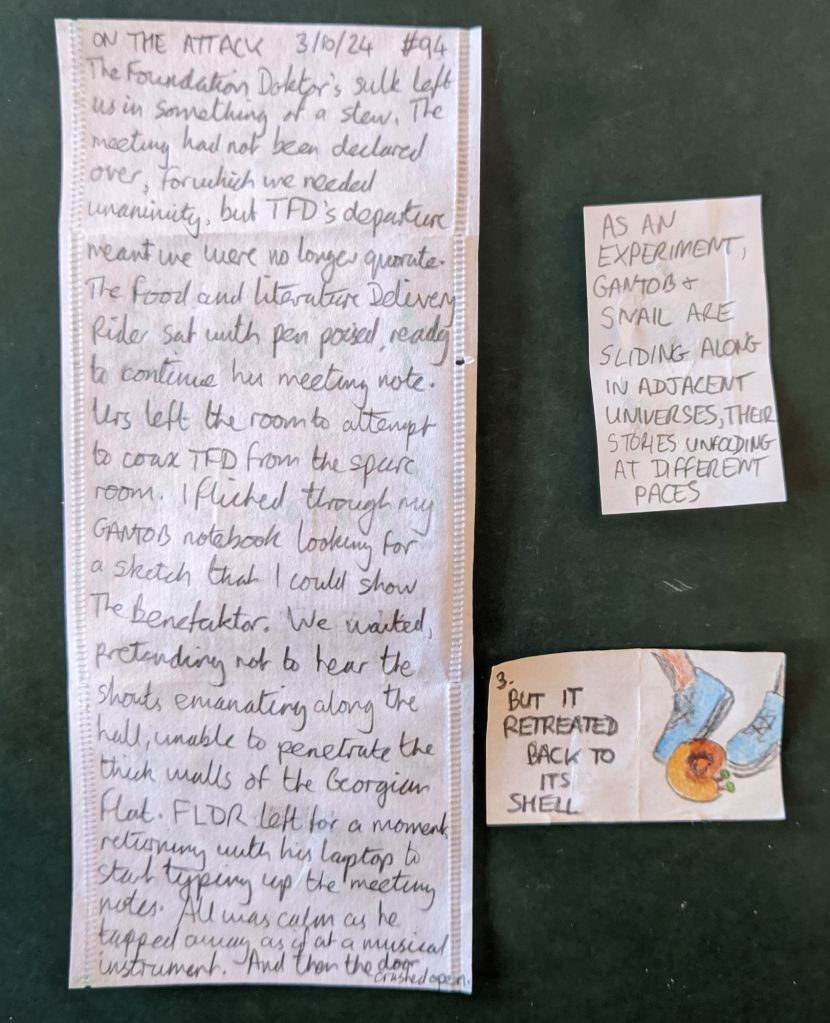 ON THE ATTACK 3/10/24 #94
The Foundation Doktor's sulk left
us in something of a stew. The
meeting had not been declared
over, for which we needed
unanimity, but TFD's departure
meant we were no longer quorate.
The Food and Literature Delivery
Rider sat with pen poised, ready
to continue his meeting note.
Urs left the room to attempt
to coax TFD from the spare
room. I flicked through my
GANTOB notebook looking for
a sketch that I could show
The Benefaktor. We waited,
pretending not to hear the
shouts emanating along the
hall, unable to penetrate the
thick walls of the Georgian
flat. FLDR left for a moment,
returning with his laptop to
start typing up the meeting
notes. All was calm as he
tapped away as if at a musical
instrument. And then the door
crashed open.
AS AN
EXPERIMENT,
GANTOB &
SNAIL ARE
SLIDING ALONG
IN ADJACENT
UNIVERSES, THEIR
STORIES UNFOLDING
AT DIFFERENT
PACES
3.
BUT IT
RETREATED
BACK TO
ITS
SHELL